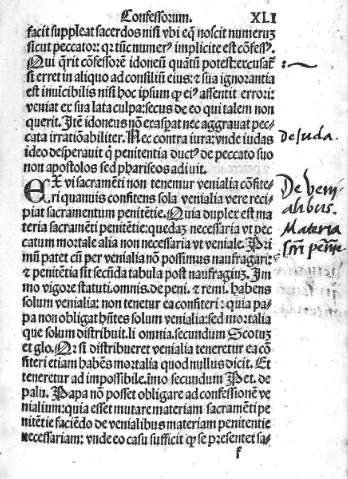 Confessorum. XLI
facit suppleat sacerdos nisi vbi eq̃ noscit numerũ
sicut peccator: qr tũc numerꝰ implicite est cõfessꝰ.
Qui q̃rit cõfessorẽ idoneũ quãtũ potest: excusat̃
si erret in aliquo ad consiliũ eius: ⁊ sua ignorantia
est inuĩcibilis nisi hoc ipsum ꝙ eiꝰ assentit errori:
veniat ex sua lata culpa: secus de eo qui talem non
querit. Itẽ idoneus nõ exaspat nec aggrauat pec-
cata irratiõabiliter. Nec contra iura: vnde iudas
ideo desperauit q̃ penitentia ductꝰ de peccato suo
non apostolos sed phariseos adiuit.
De Juda.
EX vi sacramẽti non tenemur venialia cõfite-
ri quamuis confitens sola venialia vere reci-
piat sacramentum penitẽtie. Quia duplex est ma
teria sacramẽti penitẽtie: quedaȝ necessaria vt pec
catum mortale alia non necessaria vt veniale. Pri
mũ patet cũ per venialia nõ possimus naufragari:
⁊ penitẽtia sit secũda tabula post naufragiuȝ. Im
mo vigore statuti. omnis. de peni. ⁊ remi. habens
solum venialia: non tenetur ea confiteri: quia pa-
pa non obligat hñtes solum venialia: sed mortalia
que solum distribuit. li omnia. secundum Scotuȝ
et glo. Qr si distribueret venialia teneretur ea cõ
fiteri etiam habẽs mortalia quod nullus dicit. Et
teneretur ad impossibile. imo secundum Pet. de
palu. Papa nõ posset obligare ad confessionẽ ve
nialium: quia esset mutare materiam sacramẽti pe
nitẽtie faciẽdo de venialibus materiam penitentie
necessariam: vnde eo casu sufficit ꝙ se presentet sa-
De veni
alibus.
Materia
f